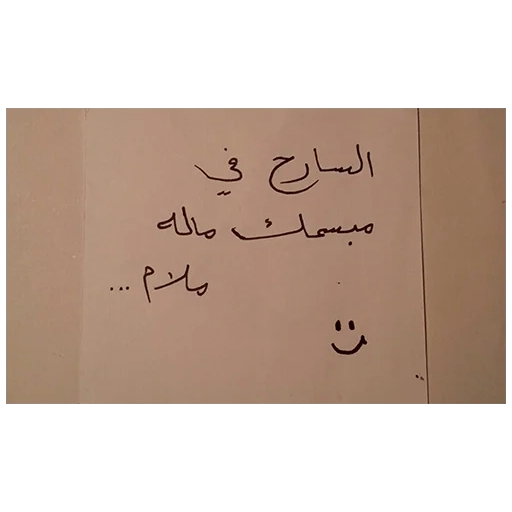 السارح في
مبسمك ماله
ملام ...